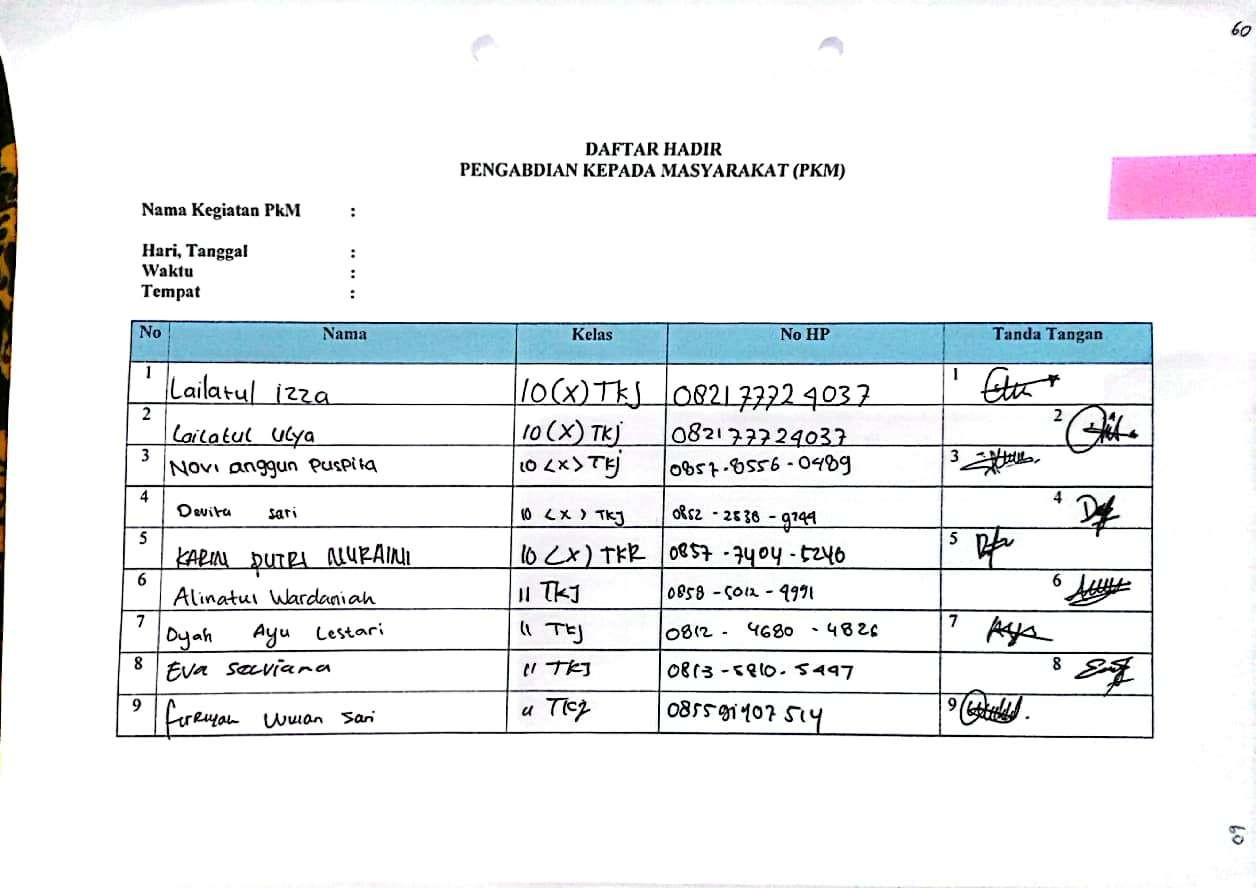 60
DAFTAR HADIR
PENGABDIAN KEPADA MASYARAKAT (PKM)
Nama Kegiatan PkM :
Hari, Tanggal :
Waktu :
Tempat :
No Nama Kelas No HP Tanda Tangan
1 Lailatul izza 10(X) TKJ 082177724037 1
2 Lailatul Ulya 10(X) TKj 082177724037 2
3 Novi anggun Puspita 10 <X> TKj 0857-8556-0489 3
4 Devita sari 10 <X> TKJ 0852-2538-9744 4
5 KARIN PUTRI NURAINI 10 <X) TKR 0857-7404-5246 5
6 Alinatul Wardaniah 11 TKJ 0858-5012-9991 6
7 Dyah Ayu Lestari 11 TKJ 0812-4680-4826 7
8 Eva selviana 11 TKJ 0813-5810-5497 8
9 Wulan Sari 11 TKJ 9
60